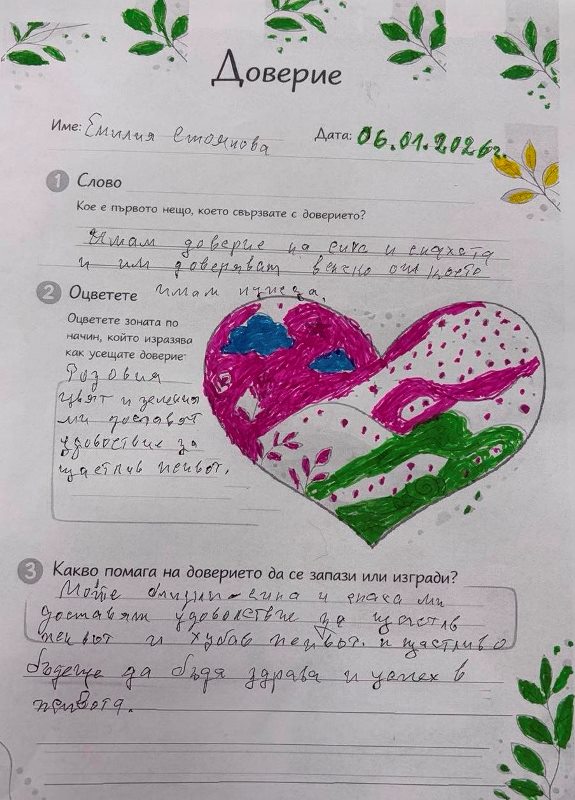 Доверие
Име: Емилия Стоянова Дата: 06.01.2026г.
1 Слово
Кое е първото нещо, което свързвате с доверието?
Имам доверие на сина и снахата
и им доверяват всичко от което
имам нужда.
2 Оцветете
Оцветете зоната по
начин, който изразява
как усещате доверие:
Розовия
цвят и зеления
ми доставят
удовоствие за
щастлив живот.
3 Какво помага на доверието да се запази или изгради?
Мойте близки - сина и снаха ми
доставят удоволствие за щастлив
живот и хубав живот. и щастливо
бъдеще да бъдя здрава и успех в
живота.